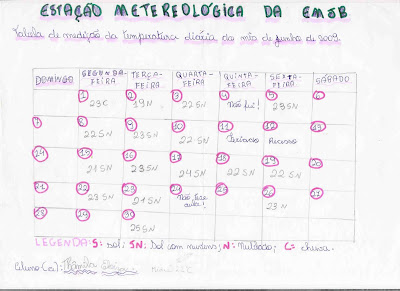 ESTAÇÃO METEREOLÓGICA DA EMJB
Tabela de medição da temperatura diária do mês de junho de 2009.
DOMINGO SEGUNDA-FEIRA TERÇA-FEIRA QUARTA-FEIRA QUINTA-FEIRA SEXTA-FEIRA SÁBADO
1 2 3 4 5 6
23C 19N 22SN Não fui! 23SN
7 8 9 10 11 12 13
22SN 23SN 22SN Recesso
14 15 16 17 18 19 20
21SN 23SN 24SN 22SN 22SN
21 22 23 24 25 26 27
23SN 21SN Não teve aula! 23N
28 29 30
25SN
LEGENDA: S: sol; SN: Sol com nuvens; N: Nublado; C= chuva.
Aluno(a):